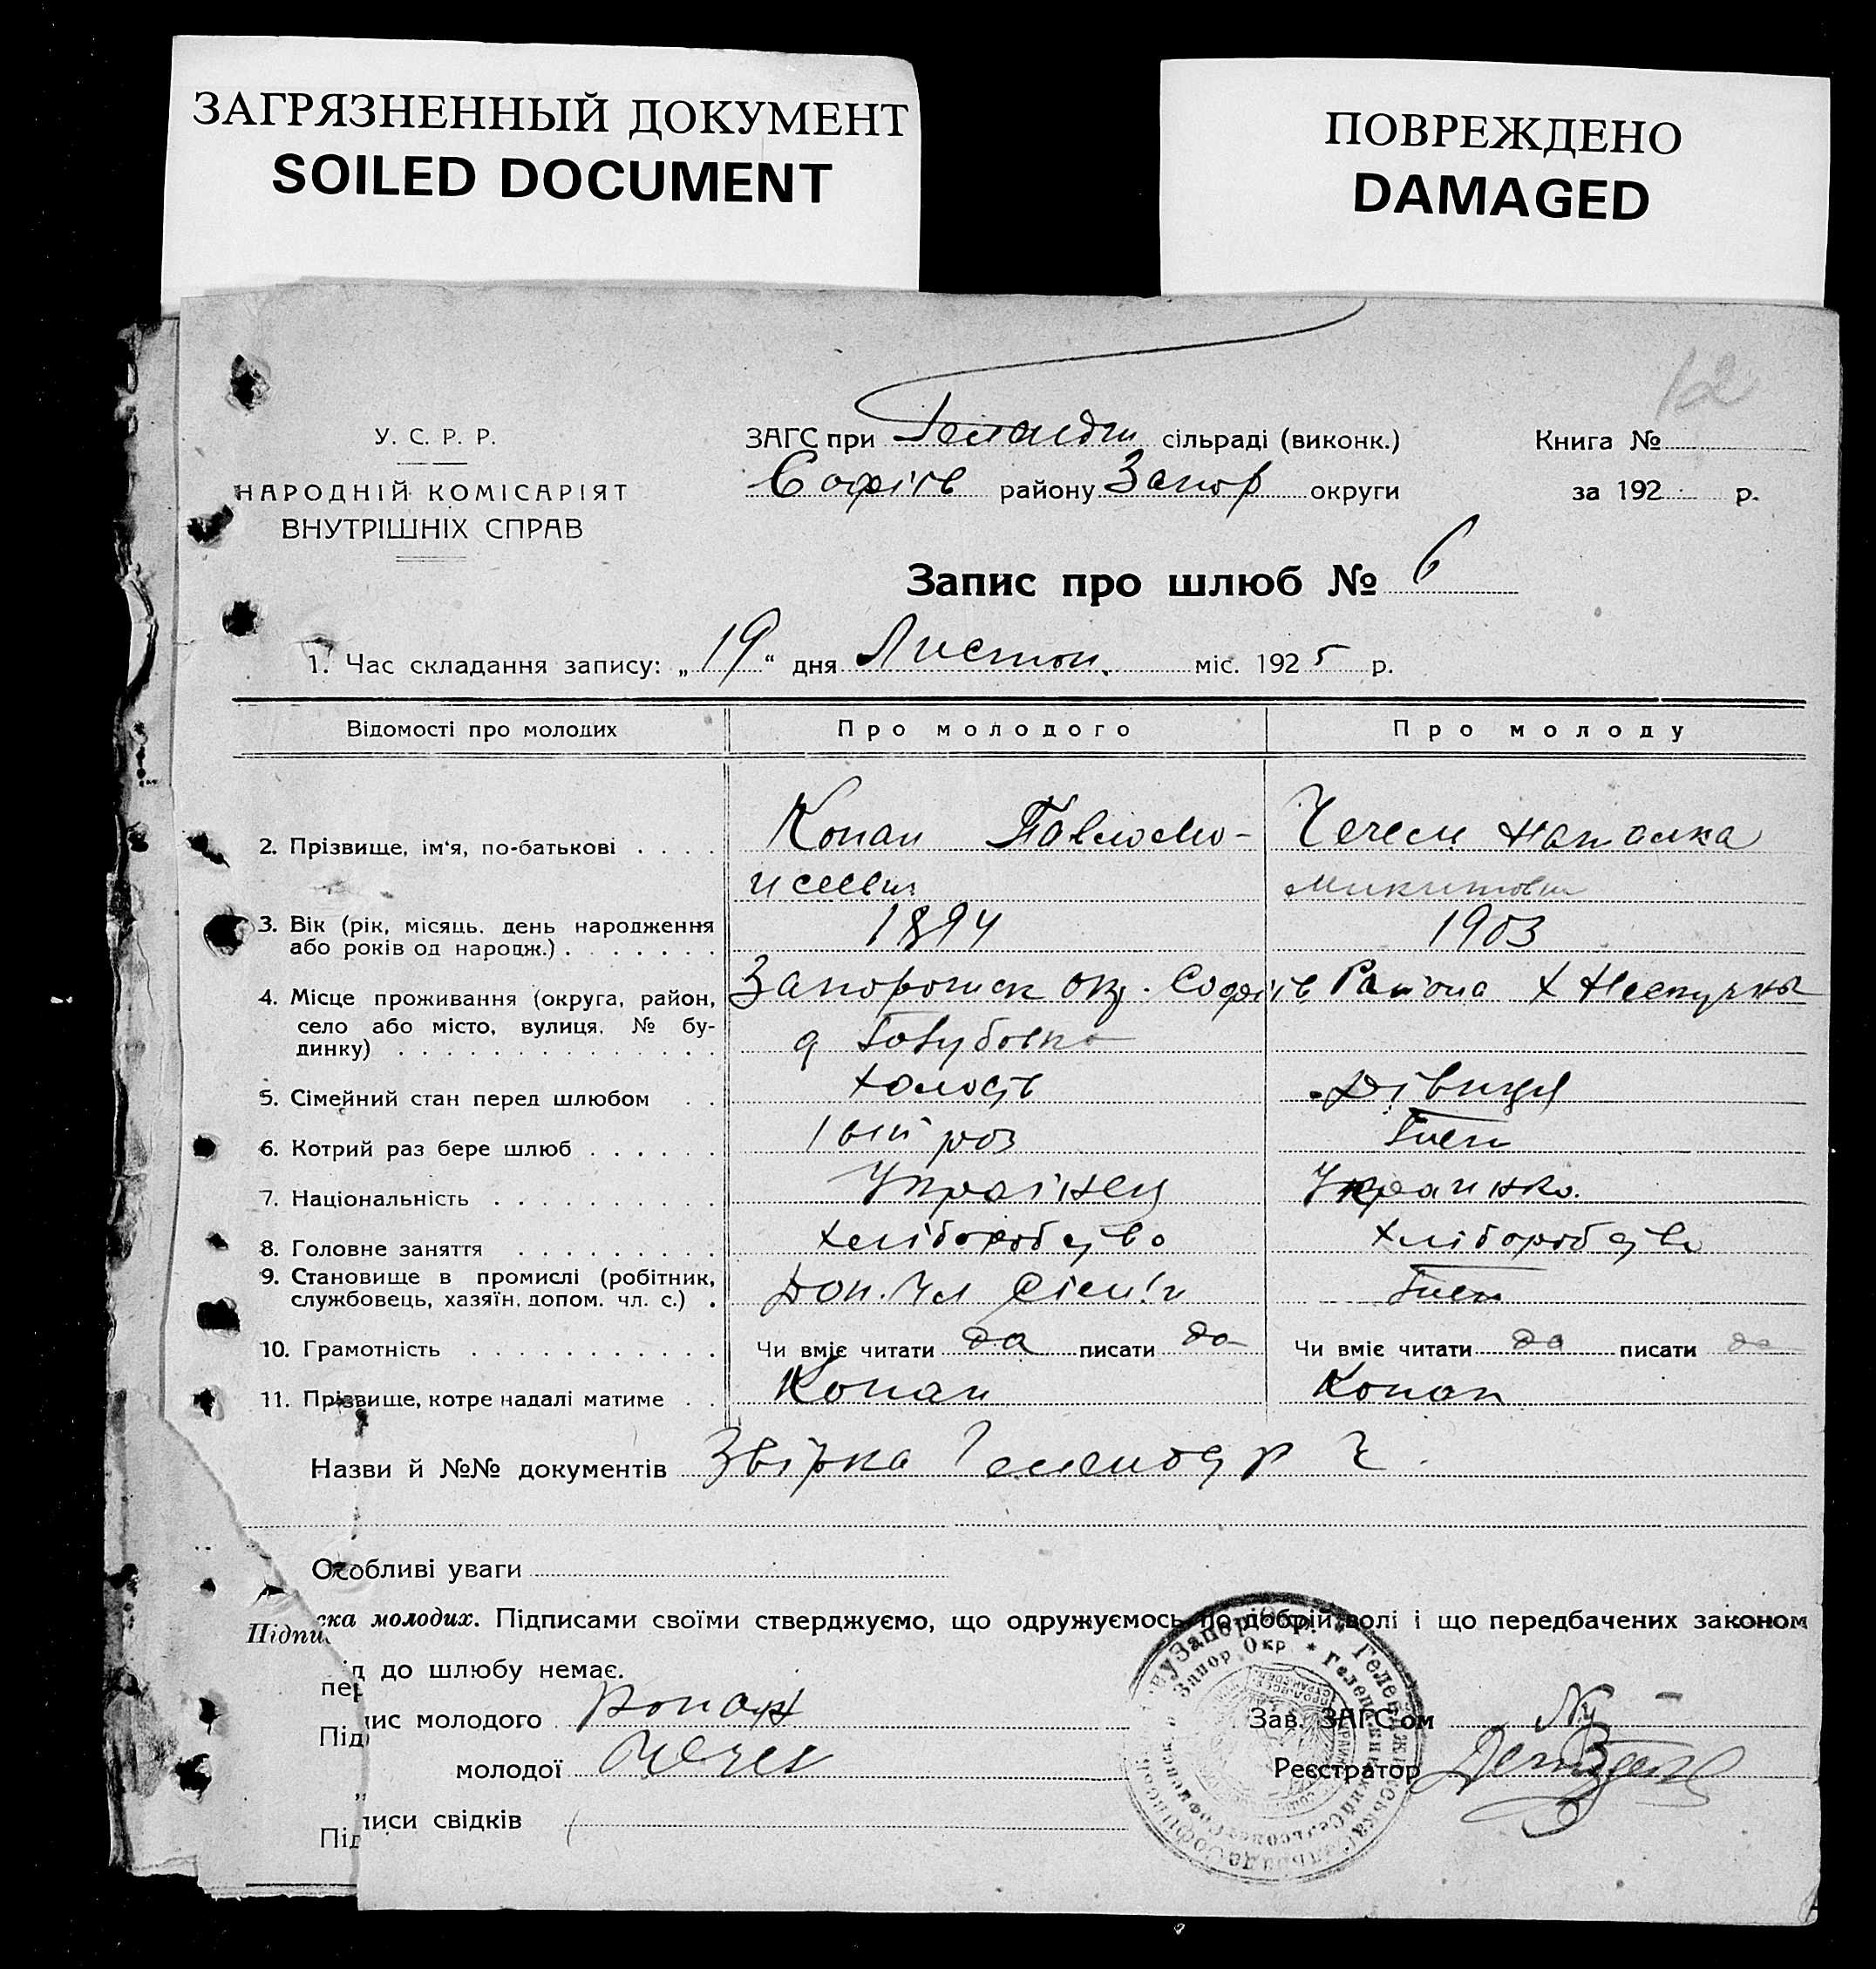 ЗАГРЯЗНЕННЫЙ ДОКУМЕНТ
SOILED DOCUMENT
ПОВРЕЖДЕНО
DAMAGED
12
У. С. Р. Р.
НАРОДНІЙ КОМІСАРІЯТ
ВНУТРІШНІХ СПРАВ
ЗАГС при сільраді (виконк.)
Софіїв району Запор округи
Книга №
за 192 р.
Запис про шлюб № 6
1. Час складання запису: „19“ дня Листоп. міс. 1925 р.
Відомості про молодих Про молодого Про молоду
2. Прізвище, ім'я, по-батькові Копан Павло Мо- Чечель Наталка
исеевич Микитовна
3. Вік (рік, місяць, день народження 1894 1903
або років од народж.)
4. Місце проживання (округа, район, Запорожск окр. Софіїв Района х
село або місто, вулиця, № бу-
динку)
5. Сімейний стан перед шлюбом холость дівиця
6. Котрий раз бере шлюб 1 вий раз
7. Національність Украінец Украинка.
8. Головне заняття хліборобство хліборобство
9. Становище в промислі (робітник, Доп. чл сім'и
службовець, хазяїн, допом. чл. с.)
10. Грамотність Чи вміє читати да писати да Чи вміє читати да писати да
11. Прізвище, котре надалі матиме Копан Копан
Назви й №№ документів
Особливі уваги
Підпи
ска молодих. Підписами своїми стверджуємо, що одружуємось по добрій волі і що передбачених законом
пер
д до шлюбу немає.
Під
пис молодого Копан Зав. ЗАГС'ом
молодої Чечел Реєстратор
Під
писи свідків